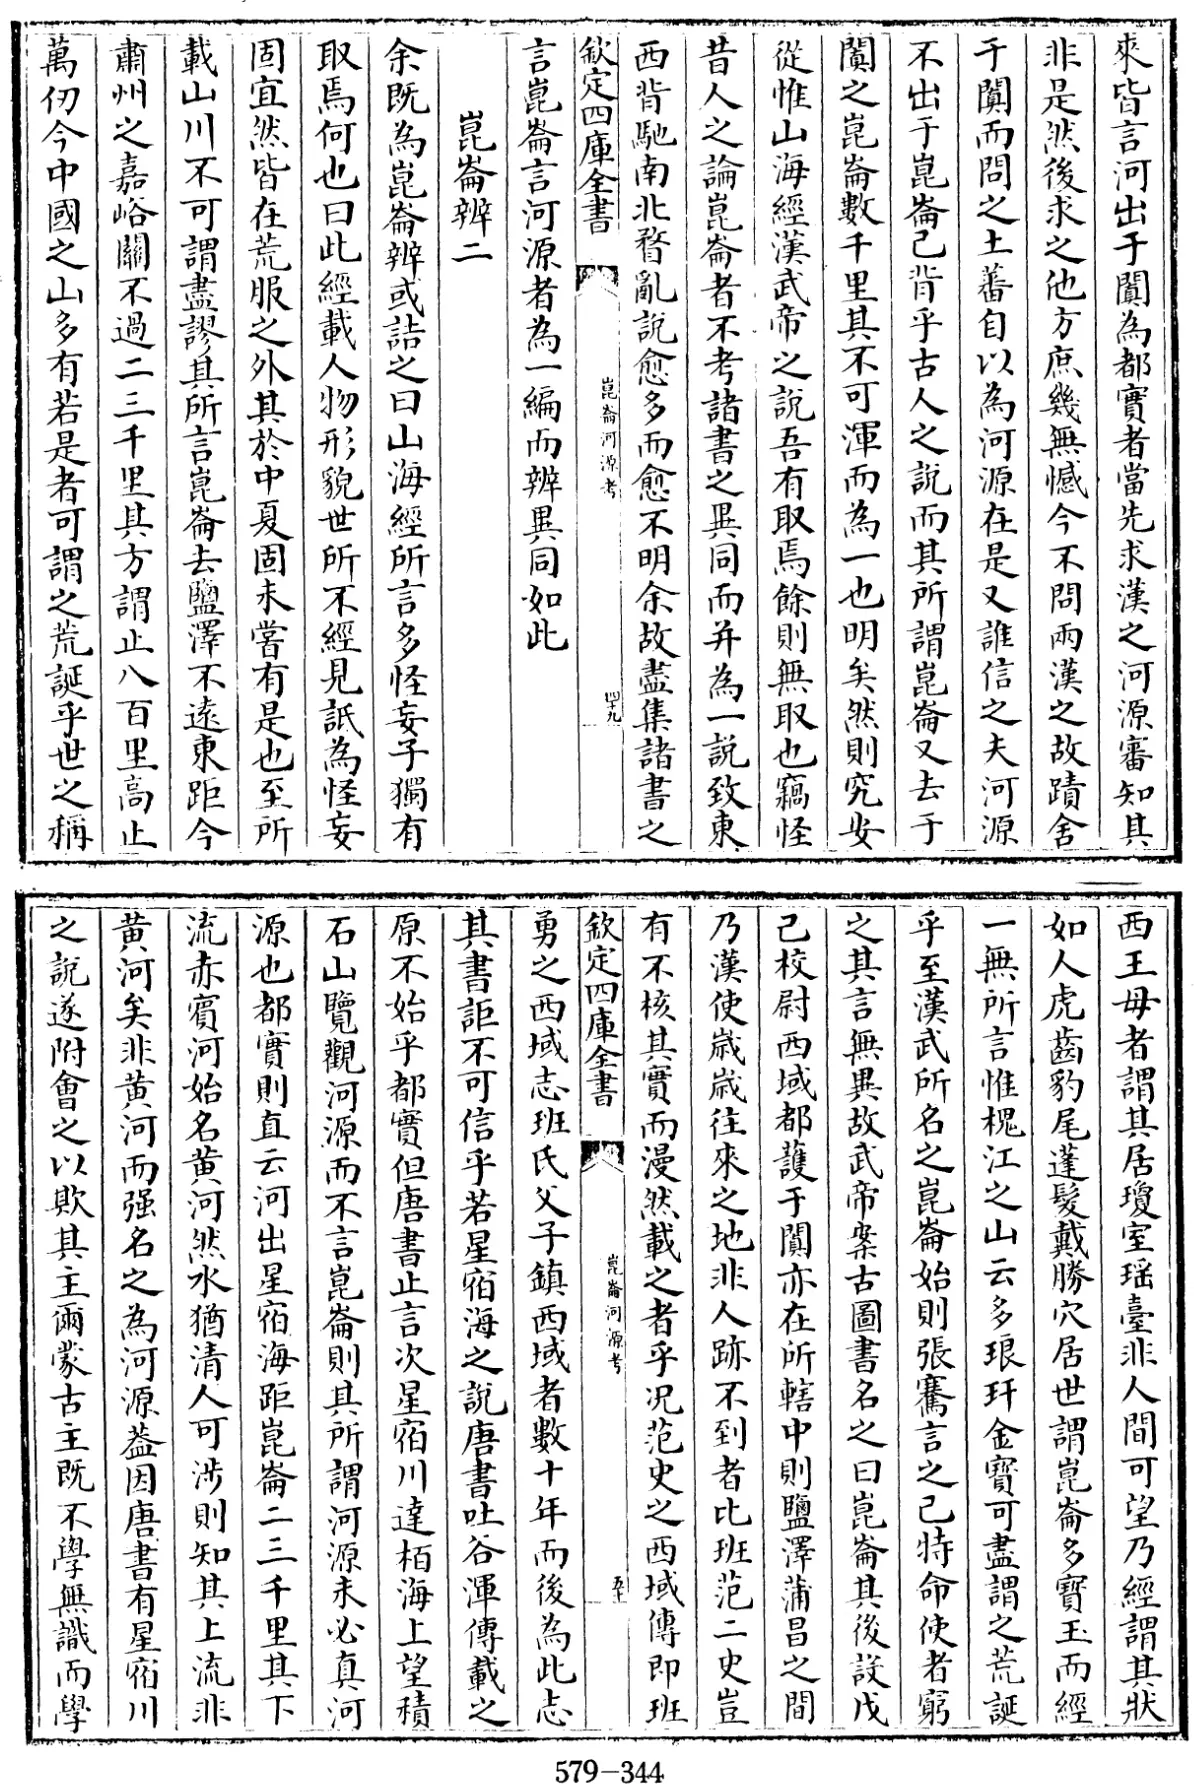 來皆言河出于闐為都實者當先求漢之河源審知其
非是然後求之他方庶幾無憾今不問兩漢之故蹟舍
于闐而問之土蕃自以為河源在是又誰信之夫河源
不出于崑崙已背乎古人之說而其所謂崑崙又去于
闐之崑崙數千里其不可渾而為一也明矣然則究安
從惟山海經漢武帝之說吾有取焉餘則無取也竊怪
昔人之論崑崙者不考諸書之異同而并為一說致東
西背馳南北瞀亂說愈多而愈不明余故盡集諸書之
欽定四庫全書
崑崙河源考
四十九
言崑崙言河源者為一編而辨異同如此
崑崙辨二
余既為崑崙辨或詰之曰山海經所言多怪妄子獨有
取焉何也曰此經載人物形貌世所不經見詆為怪妄
固宜然皆在荒服之外其於中夏固未嘗有是也至所
載山川不可謂盡謬其所言崑崙去鹽澤不遠東距今
肅州之嘉峪關不過二三千里其方謂止八百里高止
萬仞今中國之山多有若是者可謂之荒誕乎世之稱
西王母者謂其居瓊室瑶臺非人間可望乃經謂其狀
如人虎齒豹尾蓬髮戴勝穴居世謂崑崙多寶玉而經
一無所言惟槐江之山云多琅玕金寶可盡謂之荒誕
乎至漢武所名之崑崙始則張騫言之已特命使者窮
之其言無異故武帝案古圖書名之曰崑崙其後設戊
己校尉西域都護于闐亦在所轄中則鹽澤蒲昌之間
乃漢使歲歲往來之地非人跡不到者比班范二史豈
有不核其實而漫然載之者乎况范史之西域傳即班
欽定四庫全書
崑崙河源考
五十
勇之西域志班氏父子鎮西域者數十年而後為此志
其書詎不可信乎若星宿海之說唐書吐谷渾傳載之
原不始乎都實但唐書止言次星宿川達栢海上望積
石山覽觀河源而不言崑崙則其所謂河源未必真河
源也都實則直云河出星宿海距崑崙二三千里其下
流赤賓河始名黄河然水猶清人可涉則知其上流非
黄河矣非黄河而强名之為河源葢因唐書有星宿川
之說遂附會之以欺其主爾蒙古主既不學無識而學
579-344